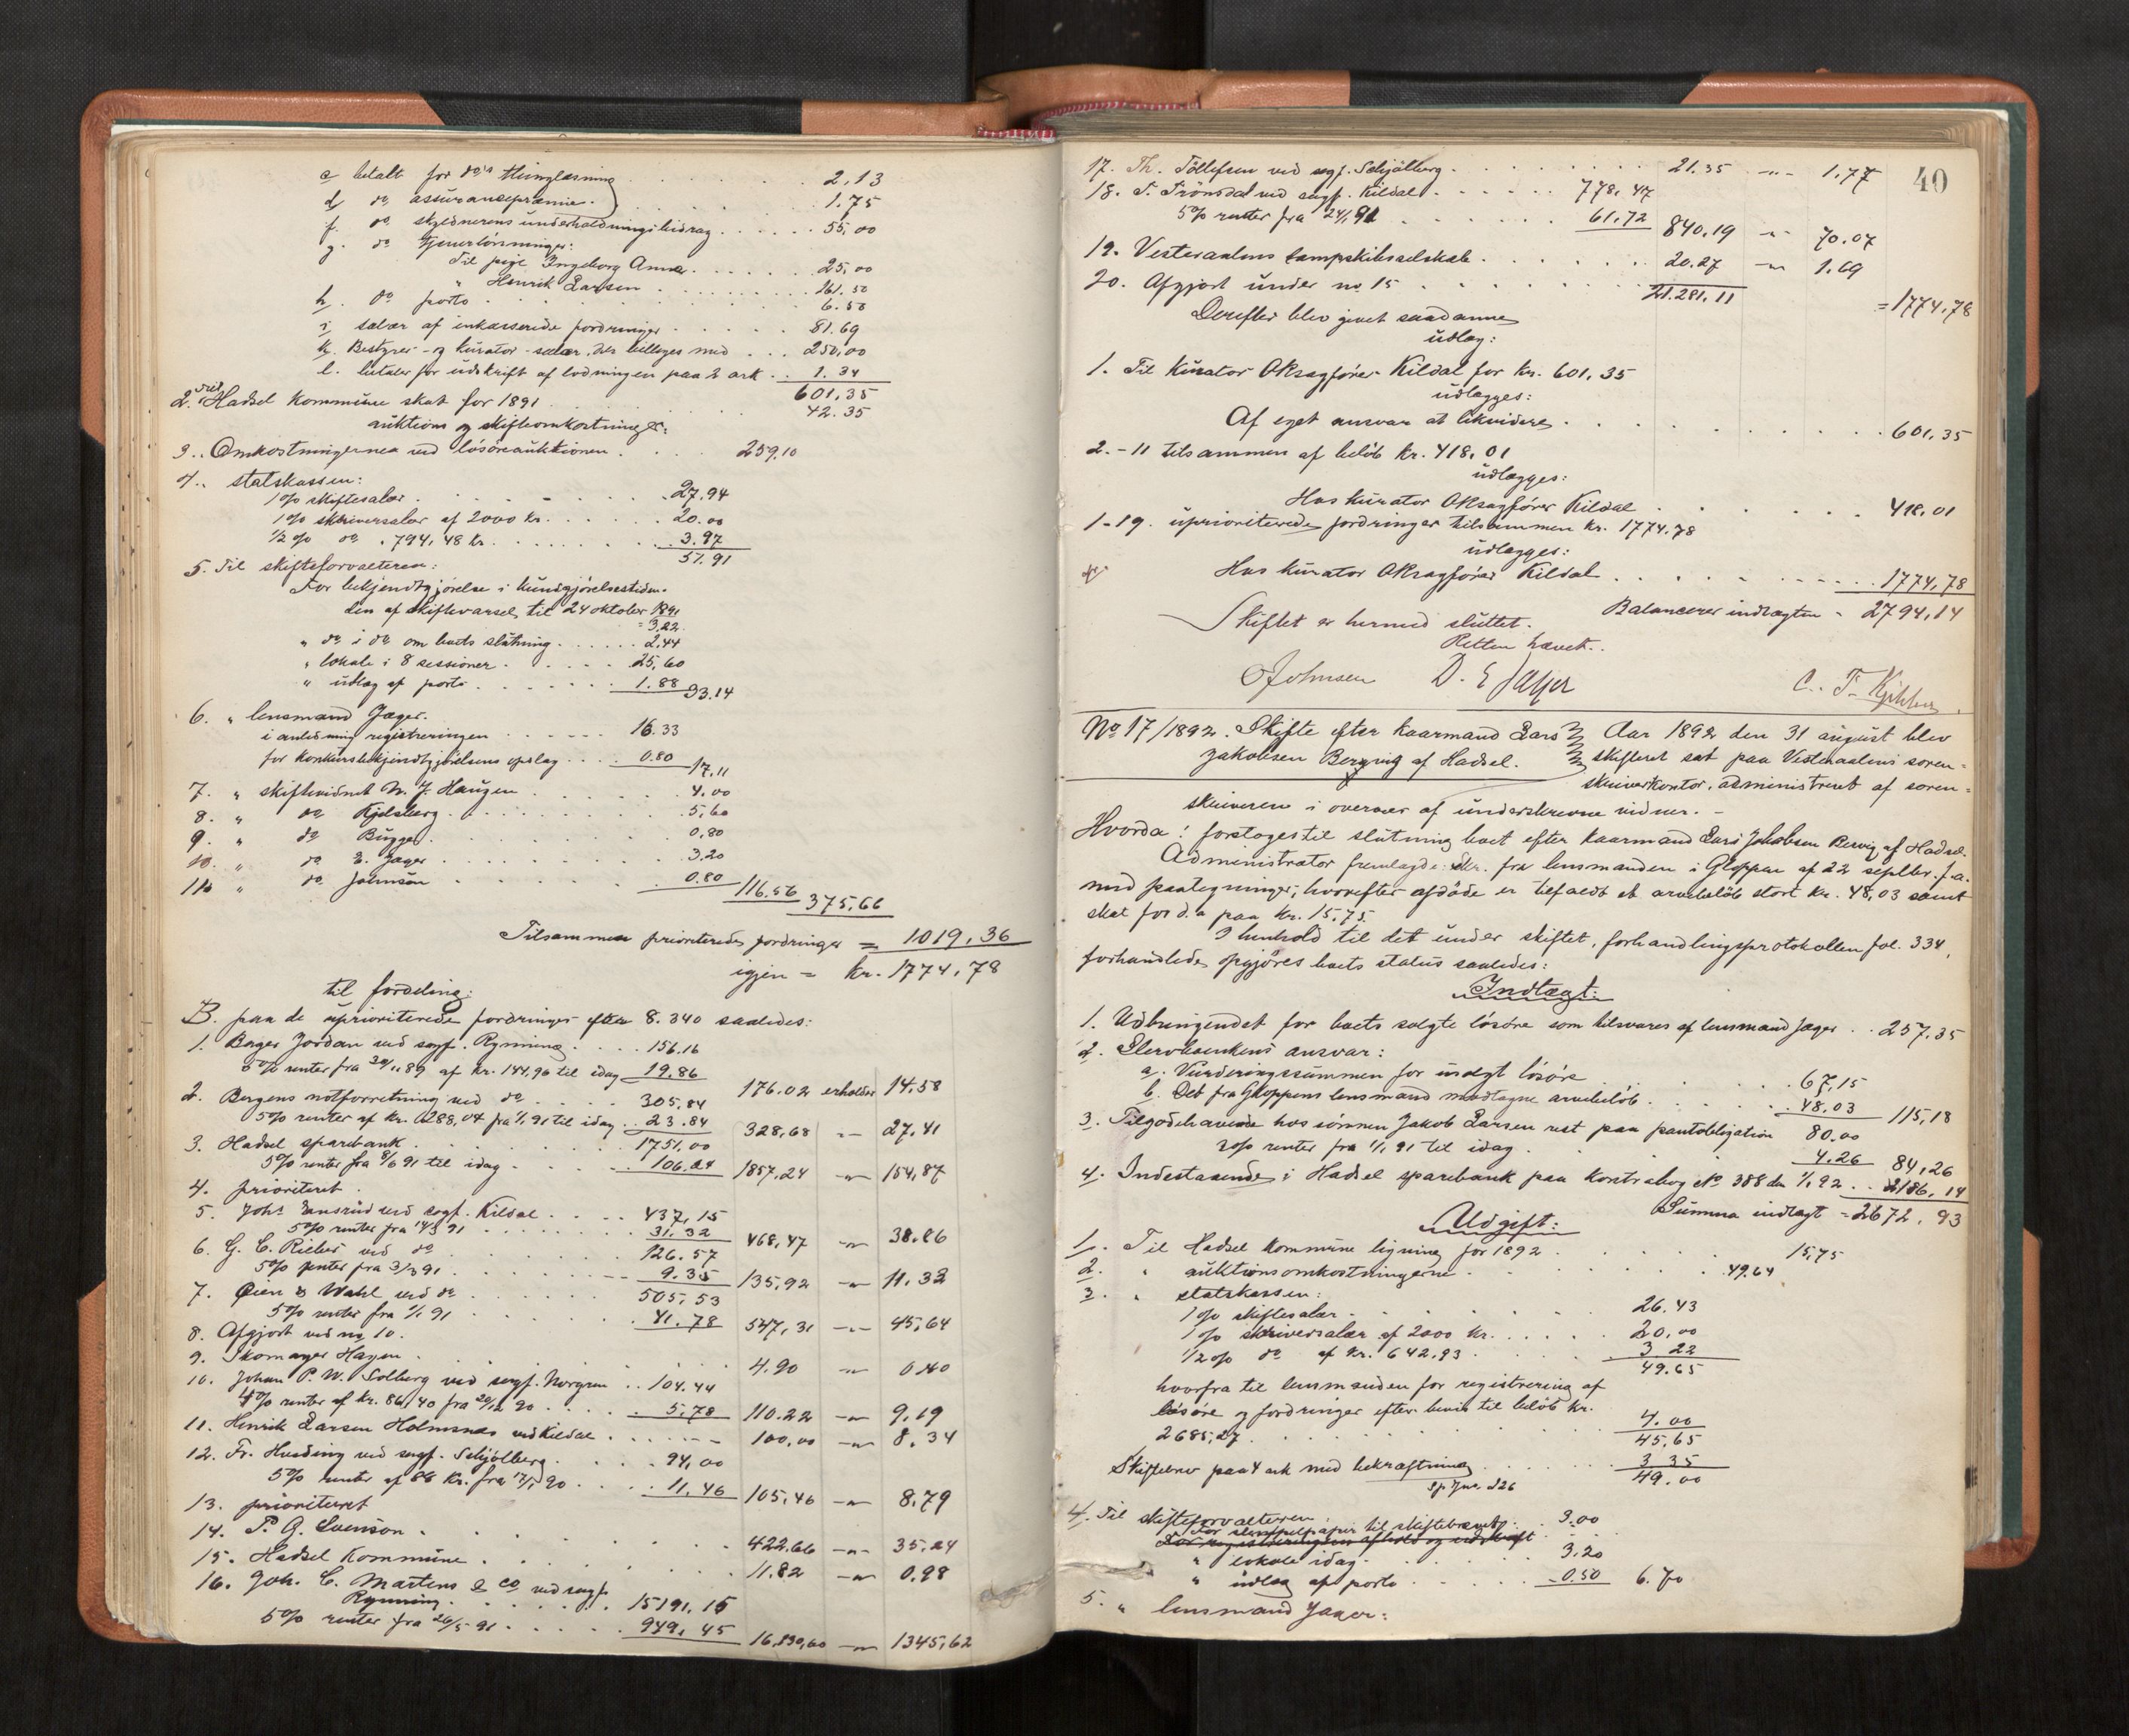 e betalt for do's thinglæsning . . . 2,13
d, do assurancepræmie . . . 1.75
f. do skyldnerens underholdningsbidrag . . . 55,00
g. do tjenerlønninger:
Til pige Ingeborg Anna . . . 25,00
" Henrik Larsen . . . 161.50
h. do porto . . . 6.50
i, salær af inkasserede fordringer . . . 81.69
k. Bestyrer- og kurator-salær, der billiges med . . . 250,00
l. betaler for udskrift af lodningen paa 2 ark . . 1.34
601,35
2. Hadsel kommune skat for 1891 . . . 42.35
auktions og skifteomkostninger:
3.. Omkostningerne ved løsøreauktionen . . . 259,10
4.. statskassen:
1% skiftesalær . . . 27,94
1% skriversalær af 2000 kr. . . . 20.00
1/2% do . 794,48 kr. . . . 3.97
51.91
5. Til skifteforvalteren:
For bekjendtgjørelse i kundgjørelsestiden-
den af skiftevarsel til 24 oktober 1891
= 3,22.
" do i do om boets slutning . . . 2,44
" lokale i 8 sessioner . . . 25,60
" udlæg af porto . . . 1.88 33.14
6. " lensmand Jæger.
i anledning registreringen . . . 16.33
for konkursbekjendtgjørelsens opslag . . . 0.80 17,11
7. " skiftevidnet N. J. Haugen . . . 4,00
8. " do Kjelsberg . . . 5,60
9. " do Bugge . . . 0,80
10. " do E. Jæger . . . 3,20
11. " do Johnsen . . . 0.80 116.56 375,66
Tilsammen prioriterede fordringer = 1019,36
igjen = kr. 1774,78
til fordeling:
B. paa de uprioriterede fordringer efter 8.340 saaledes:
1. Berger Jordan ved sagf. Rynning . . . 156.16
5% renter fra 30/11 89 af kr. 144,96 til idag 19.86 176.02 erholder 14.58
2. Bergens notforretning ved do . . . 305,84
5% renter af kr. 288,04 fra 1/1 91 til idag . . 23.84 328,68 -"- 27,41
3. Hadsel sparebank . . . 1751,00
5% renter fra 8/6 91 til idag . . . 106.24 1857.24 -"- 154,87
4. prioriteret.
5. Johs Ensrud ved sagf. Kildal . . . 437,15
5% renter fra 14/3 91 . . . 31.32 468,47 -"- 38.86
6. G. C. Rieber ved do . . . 126.57
5% renter fra 3/3 91 . . . 9.35 135,92 -"- 11.32
7. Øien & Wahl ved do . . . 505,53
5% renter fra 1/1 91 . . . 41.78 547,31 -"- 45,64
8. Afgjort ved no 10.
9. Skomager Hagen . . . 4.90 -"- 0.40
10. Johan P. W. Solberg ved sagf. Norgren . . 104.44
4% renter af kr. 86,40 fra 20/12 90 . . . 5.78 110.22 -"- 9,19
11. Henrik Larsen Holmsnæs ved Kildal . . . 100,00 -"- 8.34
12. Fr. Husding ved sagf. Schjølberg . . . 94,00
5% renter af 86 kr. fra 17/1 90 . . . 11,46 105,46 -"- 8,79
13. prioriteret
14. P. G. Svenson . . . 422.66 -"- 35,24
15. Hadsel kommune . . . 11.82 -"- 0.98
16. Joh. C. Martens & Co ved sagf.
Rynning . . . 15191,15
5% renter fra 26/5 91 . . . 949,45 16,130,60 -"- 1345,62
40
17. Th. Tollefsen ved sagf. Schjølberg . . . 21.35 -"- 1,77
18. T. Trönsdal ved sagf. Kildal . . . 778,47
5% renter fra 24/1 91 . . . 61.72 840.19 -"- 70.07
19. Vesteraalens dampskibsselskab . . . 20.27 -"- 1.69
20. Afgjort under no 15 . . . 21.281,11 = 1774,78
Derefter blev givet saadanne
udlæg:
1. Til kurator OKsagfører Kildal for kr. 601,35
udlægges:
Af eget ansvar at likvidere . . . 601,35
2.-11 tilsammen af beløb kr. 418,01
udlægges:
Hos kurator OKsagfører Kildal . . . 418,01
1-19. uprioriterede fordringer tilsammen kr. 1774,78
udlægges:
Hos kurator OKsagfører Kildal . . . 1774,78
Balancerer indtægten = 2794,14
Skiftet er hermed sluttet.
Retten hævet.
Johnsen D. E Jæger C. F. Kjelsberg
No 17/1892. Skifte efter kaarmand Lars Aar 1892 den 31 august blev
Jakobsen Bervig af Hadsel. skifteret sat paa Vesteraalens soren=
skriverkontor, administreret af soren=
skriveren i overvær af underskrevne vidner. -
Hvorda: foretoges til slutning boet efter kaarmand Lars Jakobsen Bervig af Hadsel.
Administrator fremlagde skr. fra lensmanden i Gloppen af 22 septbr. f.a.
med paategninger, hvorefter afdøde er tilfaldt et arvebeløb stort kr. 48,03 samt
skat for d.a paa kr. 15,75.
I henhold til det under skiftet, forhandlingsprotokollen fol. 334,
forhandlede opgjøres boets status saaledes:
Indtægt:
1. Udbringendet for boets solgte løsøre som tilsvares af lensmand Jæger . . 257,35
2. Stervboenkens ansvar:
a. Vurderingssummen for usolgt løsøre . . . 67,15
b. Det fra Gloppens lensmand modtagne arvebeløb . . . 48,03 115,18
3. Tilgodehavende hos sønnen Jakob Larsen rest paa pantobligation 80.00
% renter fra 1/1 91 til idag . . . 4.26 84,26
4. Indestaaende i Hadsel sparebank paa kontrabog No 388 den 1/1 92 . . 2186,14
Summa indtægt = 2672,93
Udgift:
1. Til Hadsel kommune ligning for 1892 . . . 15,75
2. " auktionsomkostningerne . . . 49.64
3. " statskassen:
1% skiftesalær . . . 26.43
1% skriversalær af 2000 kr. . . . 20,00
1/2% do af kr. 642,93 . . . 3 22
49.65
hvorfra til lensmanden for registrering af
løsøre og fordringer efter bevis til beløb kr.
2685,27 . . . 4.00
45,65
Skiftebrev paa 4 ark med bekræftning . . . 3 35
49.00
4. Til skifteforvalteren:
For stempelpapir til skiftebrevet . . . 3.00
" lokale idag . . . 3.20
" udlæg af porto . . . 0.50 6.70
5. " lensmand Jæger: